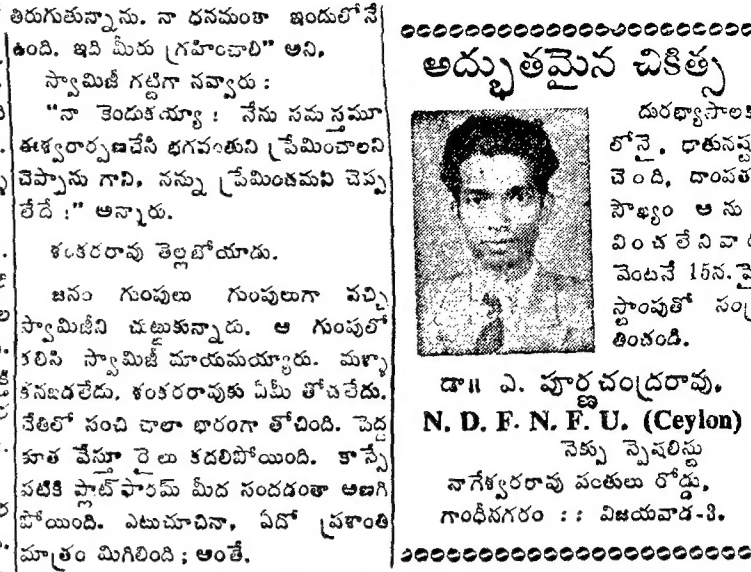 తిరుగుతున్నాను. నా ధనమంతా ఇందులోనే
ఉంది. ఇది మీరు గ్రహించాలి" అని,
స్వామిజీ గట్టిగా నవ్వారు :
"నా కెందుకయ్యా ! నేను సమ స్తమూ
ఈశ్వరార్పణచేసి భగవంతుని ప్రేమించాలని
చెప్పాను గాని, నన్ను ప్రేమించమని చెప్ప
లేదే !" అన్నారు.
శంకరరావు తెల్లబోయాడు.
జనం గుంపులు గుంపులుగా వచ్చి
స్వామిజీని చుట్టుకున్నారు. ఆ గుంపులో
కలిసి స్వామిజీ మాయమయ్యారు. మళ్ళా
కనబడలేదు. శంకరరావుకు ఏమీ తోచలేదు.
చేతిలో సంచి చాలా భారంగా తోచింది. పెద్ద
కూత వేస్తూ రైలు కదలిపోయింది. కాస్సే
పటికి ప్లాట్ ఫారమ్ మీద సందడంతా అణగి
పోయింది. ఎటుచూచినా, ఏదో ప్రశాంతి
మాత్రం మిగిలింది ; అంతే.
అద్భుతమైన చికిత్స
దురభ్యాసాలకి
లోనై, ధాతునష్ట
చెంది, దాంపత
సౌఖ్యం అ ను
వించ లేని వా
వెంటనే 15న. పై
స్టాంపుతో సంప్ర
తించండి.
డా॥ ఎ. పూర్ణచంద్రరావు,
N. D. F. N. F. U. (Ceylon)
సెక్సు స్పెషలిస్టు
నాగేశ్వరరావు పంతులు రోడ్డు,
గాంధీనగరం :: విజయవాడ-3.